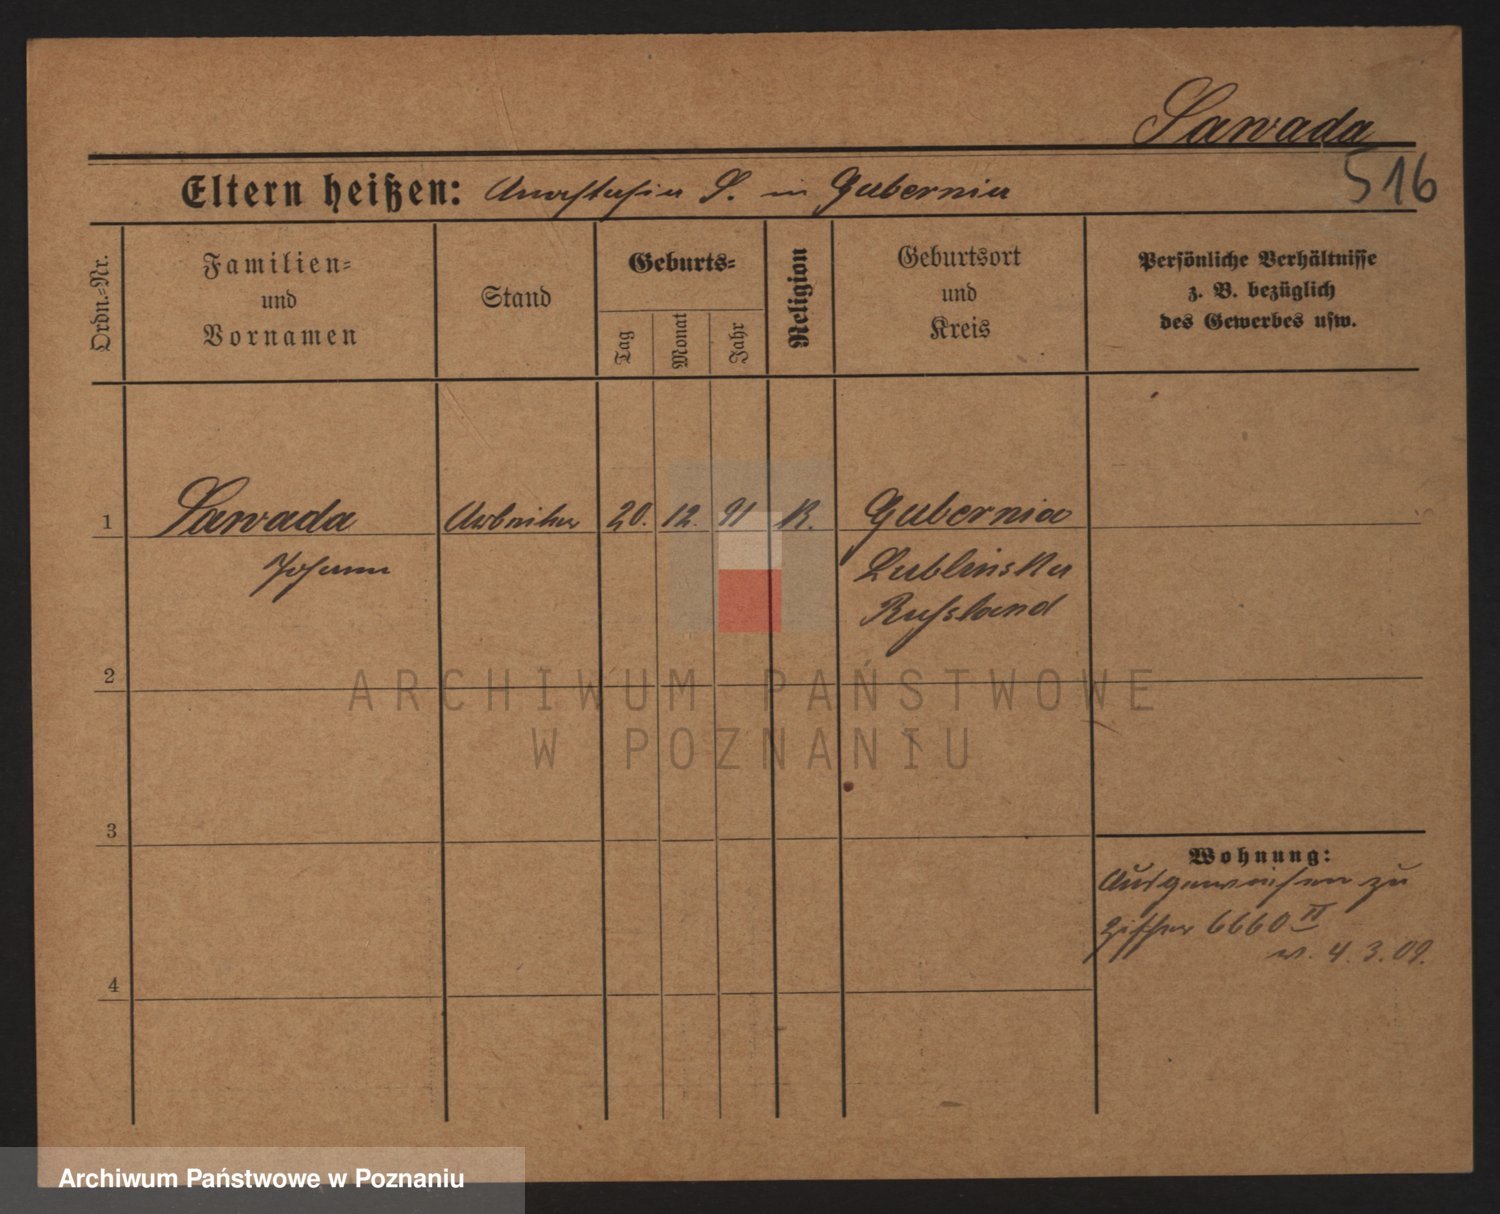 Sawada
516
Eltern heißen: Anastasia S. in Gubernia
Ordn.-Nr.
Familien-
und
Vornamen
Stand
Geburts-
Tag
Monat
Jahr
Religion
Geburtsort
und
Kreis
Persönliche Verhältnisse
z. B. bezüglich
des Gewerbes usw.
1 Sawada Arbeiter 20. 12. 91 K. Gubernia
Johann Lublinska
Russland
2
3
4
Wohnung:
Ausgewiesen zu
Ziffer 6660 II
v. 4. 3. 09.
ARCHIWUM PAŃSTWOWE
W POZNANIU
Archiwum Państwowe w Poznaniu